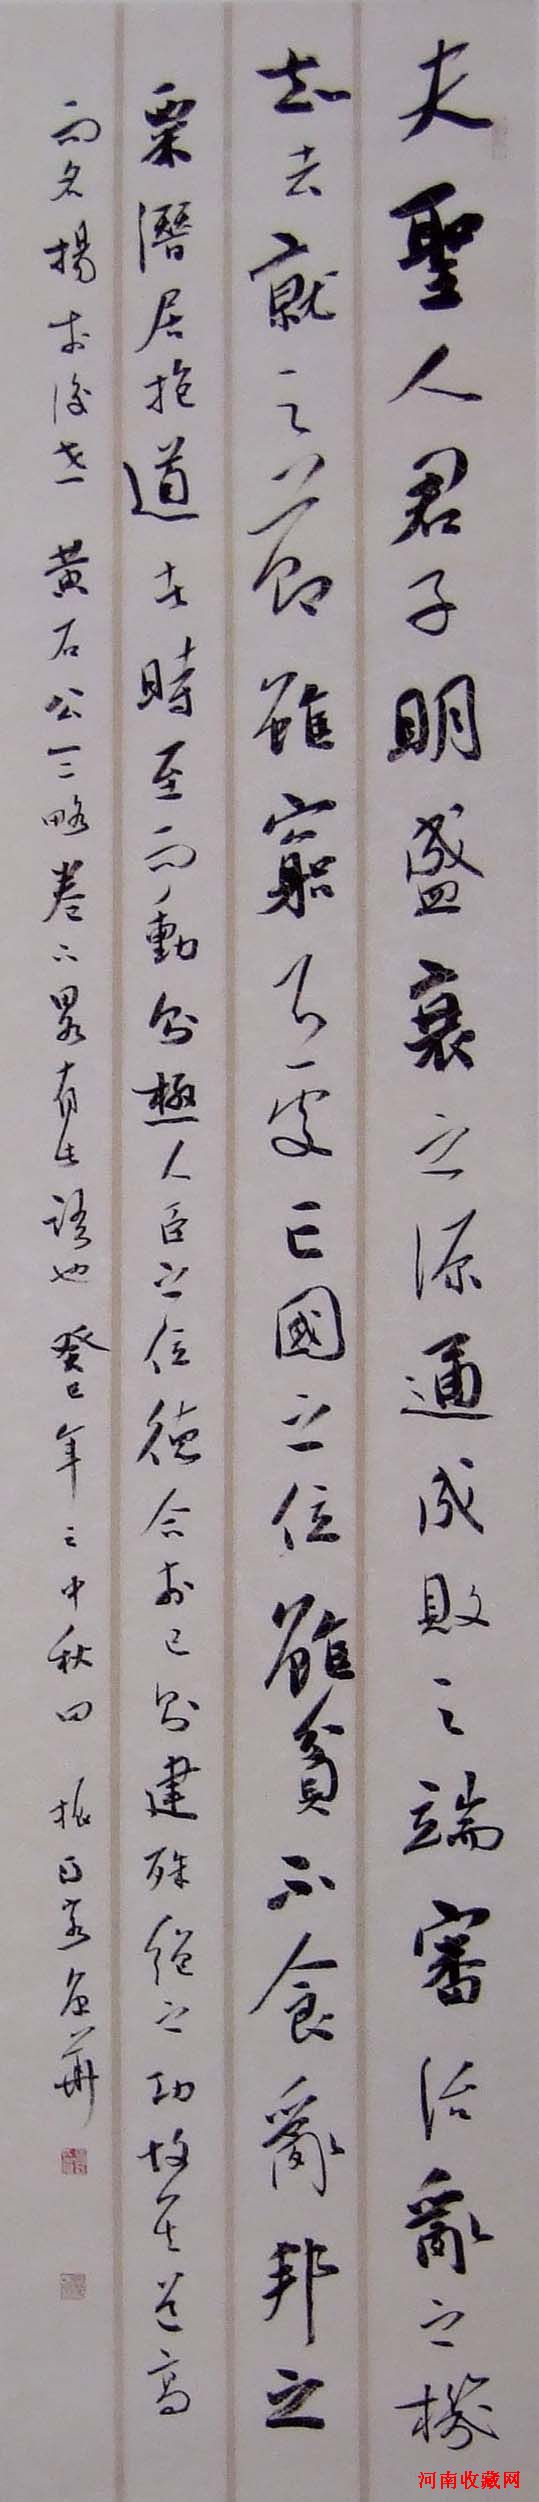 夫聖人君子明盛衰之源通成敗之端審治亂之機
知去就之節雖窮不處亡國之位雖貧不食亂邦之
粟潛居抱道者時至而動則極人臣之位德合於己則建殊絕之功故其道高
而名揚於後世 黃石公三略卷下略有此語也 癸巳年之中秋日 振
河南收藏网